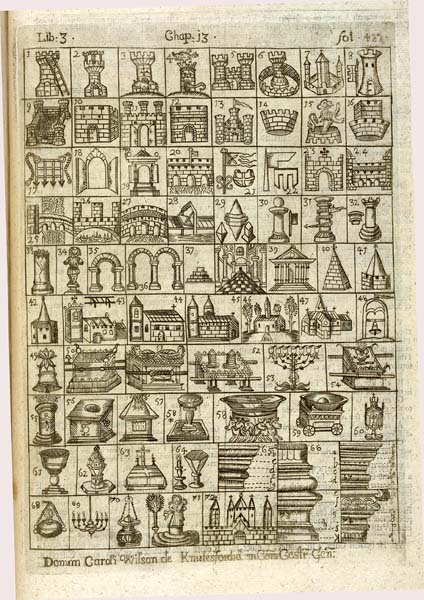 Lib: 3. Chap. 13. fol. 422
1 2 3 4 5 6 7 8
9 10 11 12 13 14 15 16
17 18 19 20 21 22 23 24
25 26 27 28 29 30 31 32
33 34 35 36 37 38 39 40 41
42 43 44 45 46 47 48
49 50 51 52 53 54
55 56 57 58 59 60
61 62 63 64 65 66
68 69 70 71 72
Donum Caroli Wilson de Knutesfordia in Com Cestr Gen: